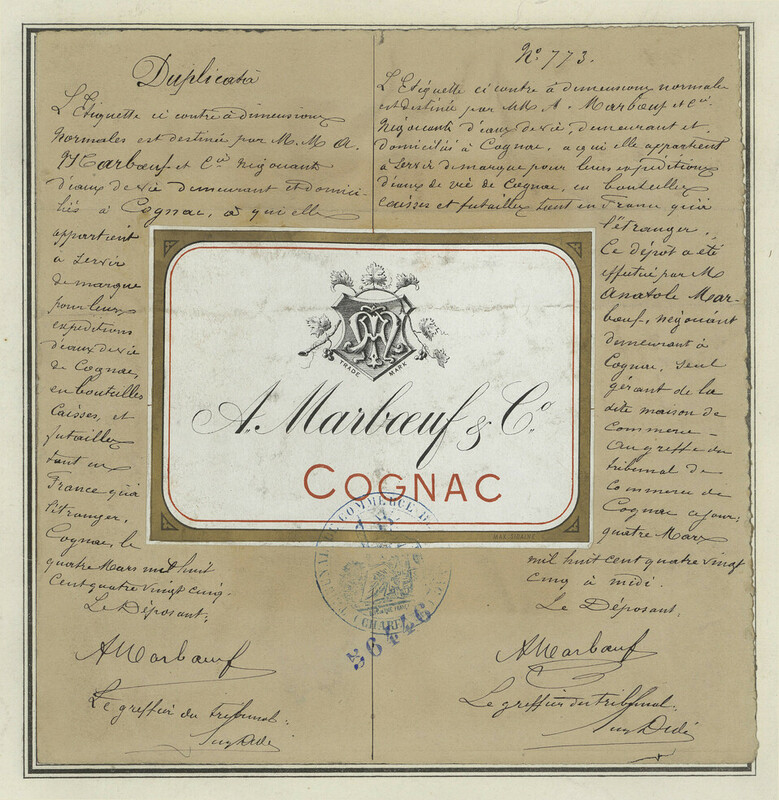 Duplicata
L'Etiquette ci contre à dimensions
normales est destinée par M.M. A.
Marbœuf et Cie négociants
d'eaux de vie demeurant et domici-
liés à Cognac, à qui elle
appartient
à servir
de marque
pour leurs
expéditions
d'eaux de vie
de Cognac,
en bouteilles
caisses, et
futailles
tant en
France qu'à
l'étranger.
Cognac, le
quatre Mars mil huit
cent quatre vingt cinq.
Le Déposant:
AMarbœuf
Le greffier du tribunal:
No. 773.
L'Etiquette ci contre à dimensions normales
est destinée par MM A. Marbœuf et Cie
Négociants d'eaux de vie, demeurant et
domiciliés à Cognac, a qui elle appartient
à servir de marque pour leurs expéditions
d'eaux de vie de Cognac, en bouteilles
caisses et futailles tant en France qu'à
l'étranger.
Ce dépôt a été
effectué par M
Anatole Mar-
bœuf, négociant
demeurant à
Cognac, seul
gérant de la
dite maison de
Commerce
au greffe du
tribunal de
Commerce de
Cognac ce jour:
quatre Mars
mil huit cent quatre vingt
cinq à midi.
Le Déposant:
AMarbœuf
Le greffier du tribunal:
TRADE MARK
A. Marbœuf & Co.
COGNAC
TRIBUNAL DE COMMERCE
56446